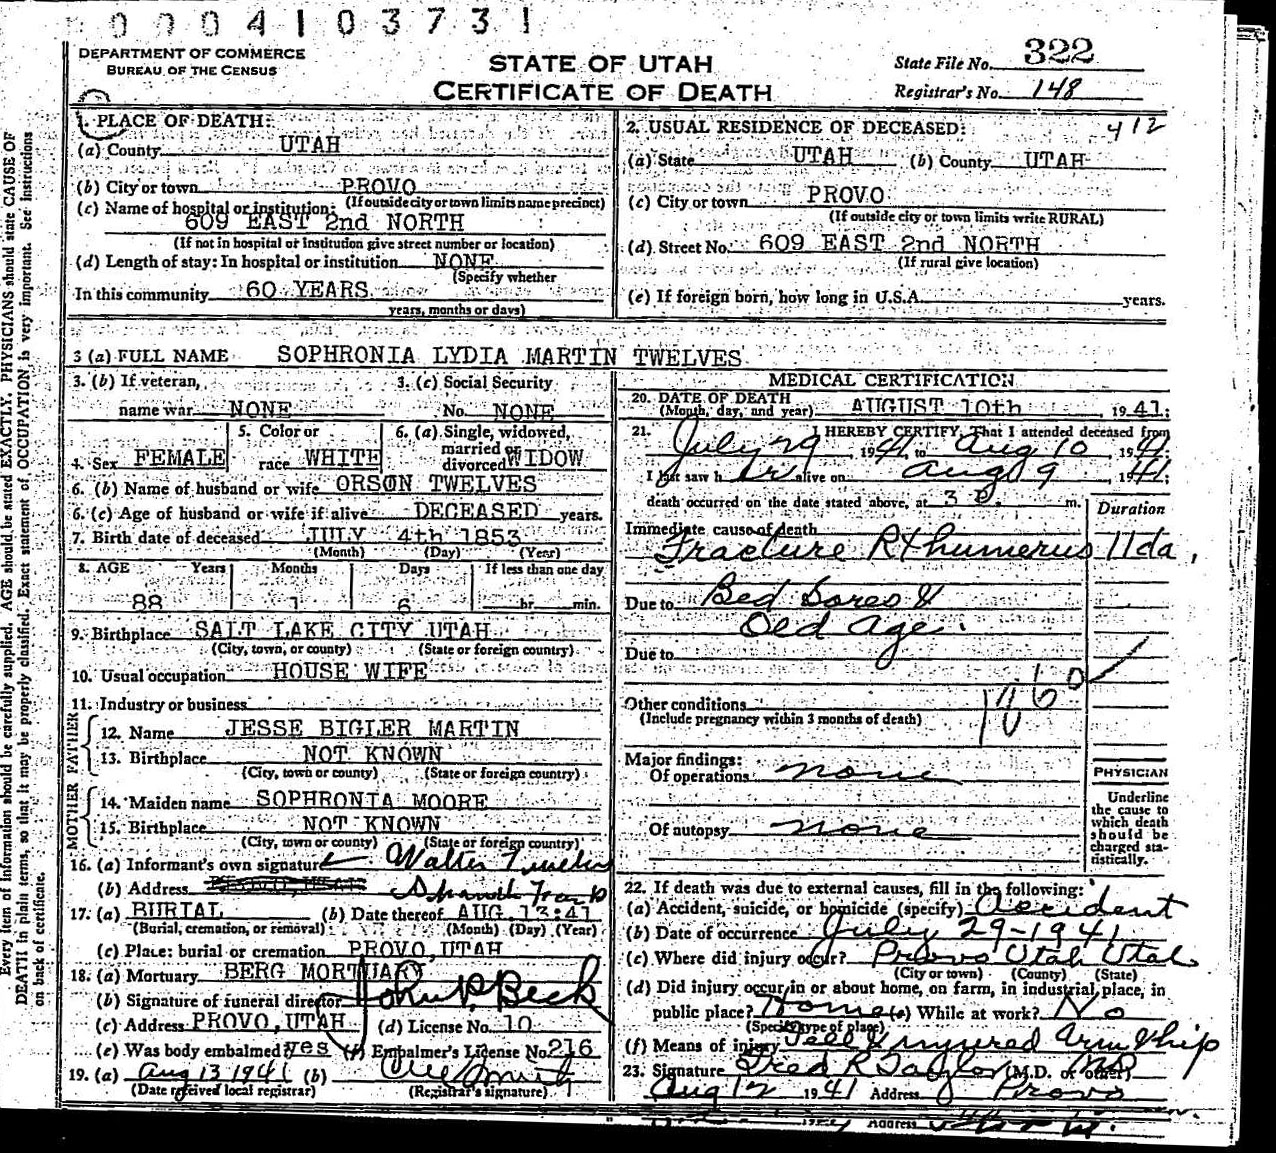 0004103731
DEPARTMENT OF COMMERCE
BUREAU OF THE CENSUS
STATE OF UTAH
CERTIFICATE OF DEATH
State File No. 322
Registrar's No. 148
1. PLACE OF DEATH:
(a) County UTAH
(b) City or town PROVO
(If outside city or town limits name precinct)
(c) Name of hospital or institution:
609 EAST 2nd NORTH
(If not in hospital or institution give street number or location)
(d) Length of stay: In hospital or institution NONE
(Specify whether
In this community 60 YEARS
years, months or days)
2. USUAL RESIDENCE OF DECEASED: 412
(a) State UTAH (b) County UTAH
(c) City or town PROVO
(If outside city or town limits write RURAL)
(d) Street No. 609 EAST 2nd NORTH
(If rural give location)
(e) If foreign born, how long in U.S.A. years.
3 (a) FULL NAME SOPHRONIA LYDIA MARTIN TWELVES
3. (b) If veteran,
name war NONE
3. (c) Social Security
No. NONE
4. Sex FEMALE
5. Color or
race WHITE
6. (a) Single, widowed,
married or
divorced WIDOW
6. (b) Name of husband or wife ORSON TWELVES
6. (c) Age of husband or wife if alive DECEASED years.
7. Birth date of deceased JULY 4th 1853
(Month) (Day) (Year)
8. AGE Years Months Days If less than one day
88 1 6 hr. min.
9. Birthplace SALT LAKE CITY UTAH
(City, town, or county) (State or foreign country)
10. Usual occupation HOUSE WIFE
11. Industry or business
FATHER
12. Name JESSE BIGLER MARTIN
13. Birthplace NOT KNOWN
(City, town or county) (State or foreign country)
MOTHER
14. Maiden name SOPHRONIA MOORE
15. Birthplace NOT KNOWN
(City, town or county) (State or foreign country)
16. (a) Informant's own signature Walter Twelves
(b) Address Spanish Fork
17. (a) BURIAL (b) Date thereof AUG. 13:41
(Burial, cremation, or removal) (Month) (Day) (Year)
(c) Place: burial or cremation PROVO, UTAH
18. (a) Mortuary BERG MORTUARY
(b) Signature of funeral director John P. Beck
(c) Address PROVO, UTAH (d) License No. 10
(e) Was body embalmed? yes (f) Embalmer's License No. 216
19. (a) Aug 13 1941 (b)
(Date received local registrar) (Registrar's signature)
MEDICAL CERTIFICATION
20. DATE OF DEATH
(Month, day, and year) AUGUST 10th, 1941;
21. I HEREBY CERTIFY, That I attended deceased from
July 29 1941, to Aug 10 1941;
I last saw her alive on Aug 9 1941;
death occurred on the date stated above, at 3 P. m.
Duration
Immediate cause of death
Fracture Rt humerus 11da,
Due to Bed Sores &
Old Age.
Due to
Other conditions
(Include pregnancy within 3 months of death)
Major findings:
Of operations none
Of autopsy none
PHYSICIAN
Underline
the cause to
which death
should be
charged sta-
tistically.
22. If death was due to external causes, fill in the following:
(a) Accident, suicide, or homicide (specify) Accident
(b) Date of occurrence July 29-1941
(c) Where did injury occur? Provo Utah Utah
(City or town) (County) (State)
(d) Did injury occur in or about home, on farm, in industrial place, in
public place? Home (e) While at work? No
(Specify type of place)
(f) Means of injury Fell & injured Arm & hip
23. Signature Fred R Taylor (M.D. or other) MD
Aug 12 1941 Address Provo
Address
Every item of information should be carefully supplied. AGE should be stated EXACTLY. PHYSICIANS should state CAUSE OF
DEATH in plain terms, so that it may be properly classified. Exact statement of OCCUPATION is very important. See instructions
on back of certificate.